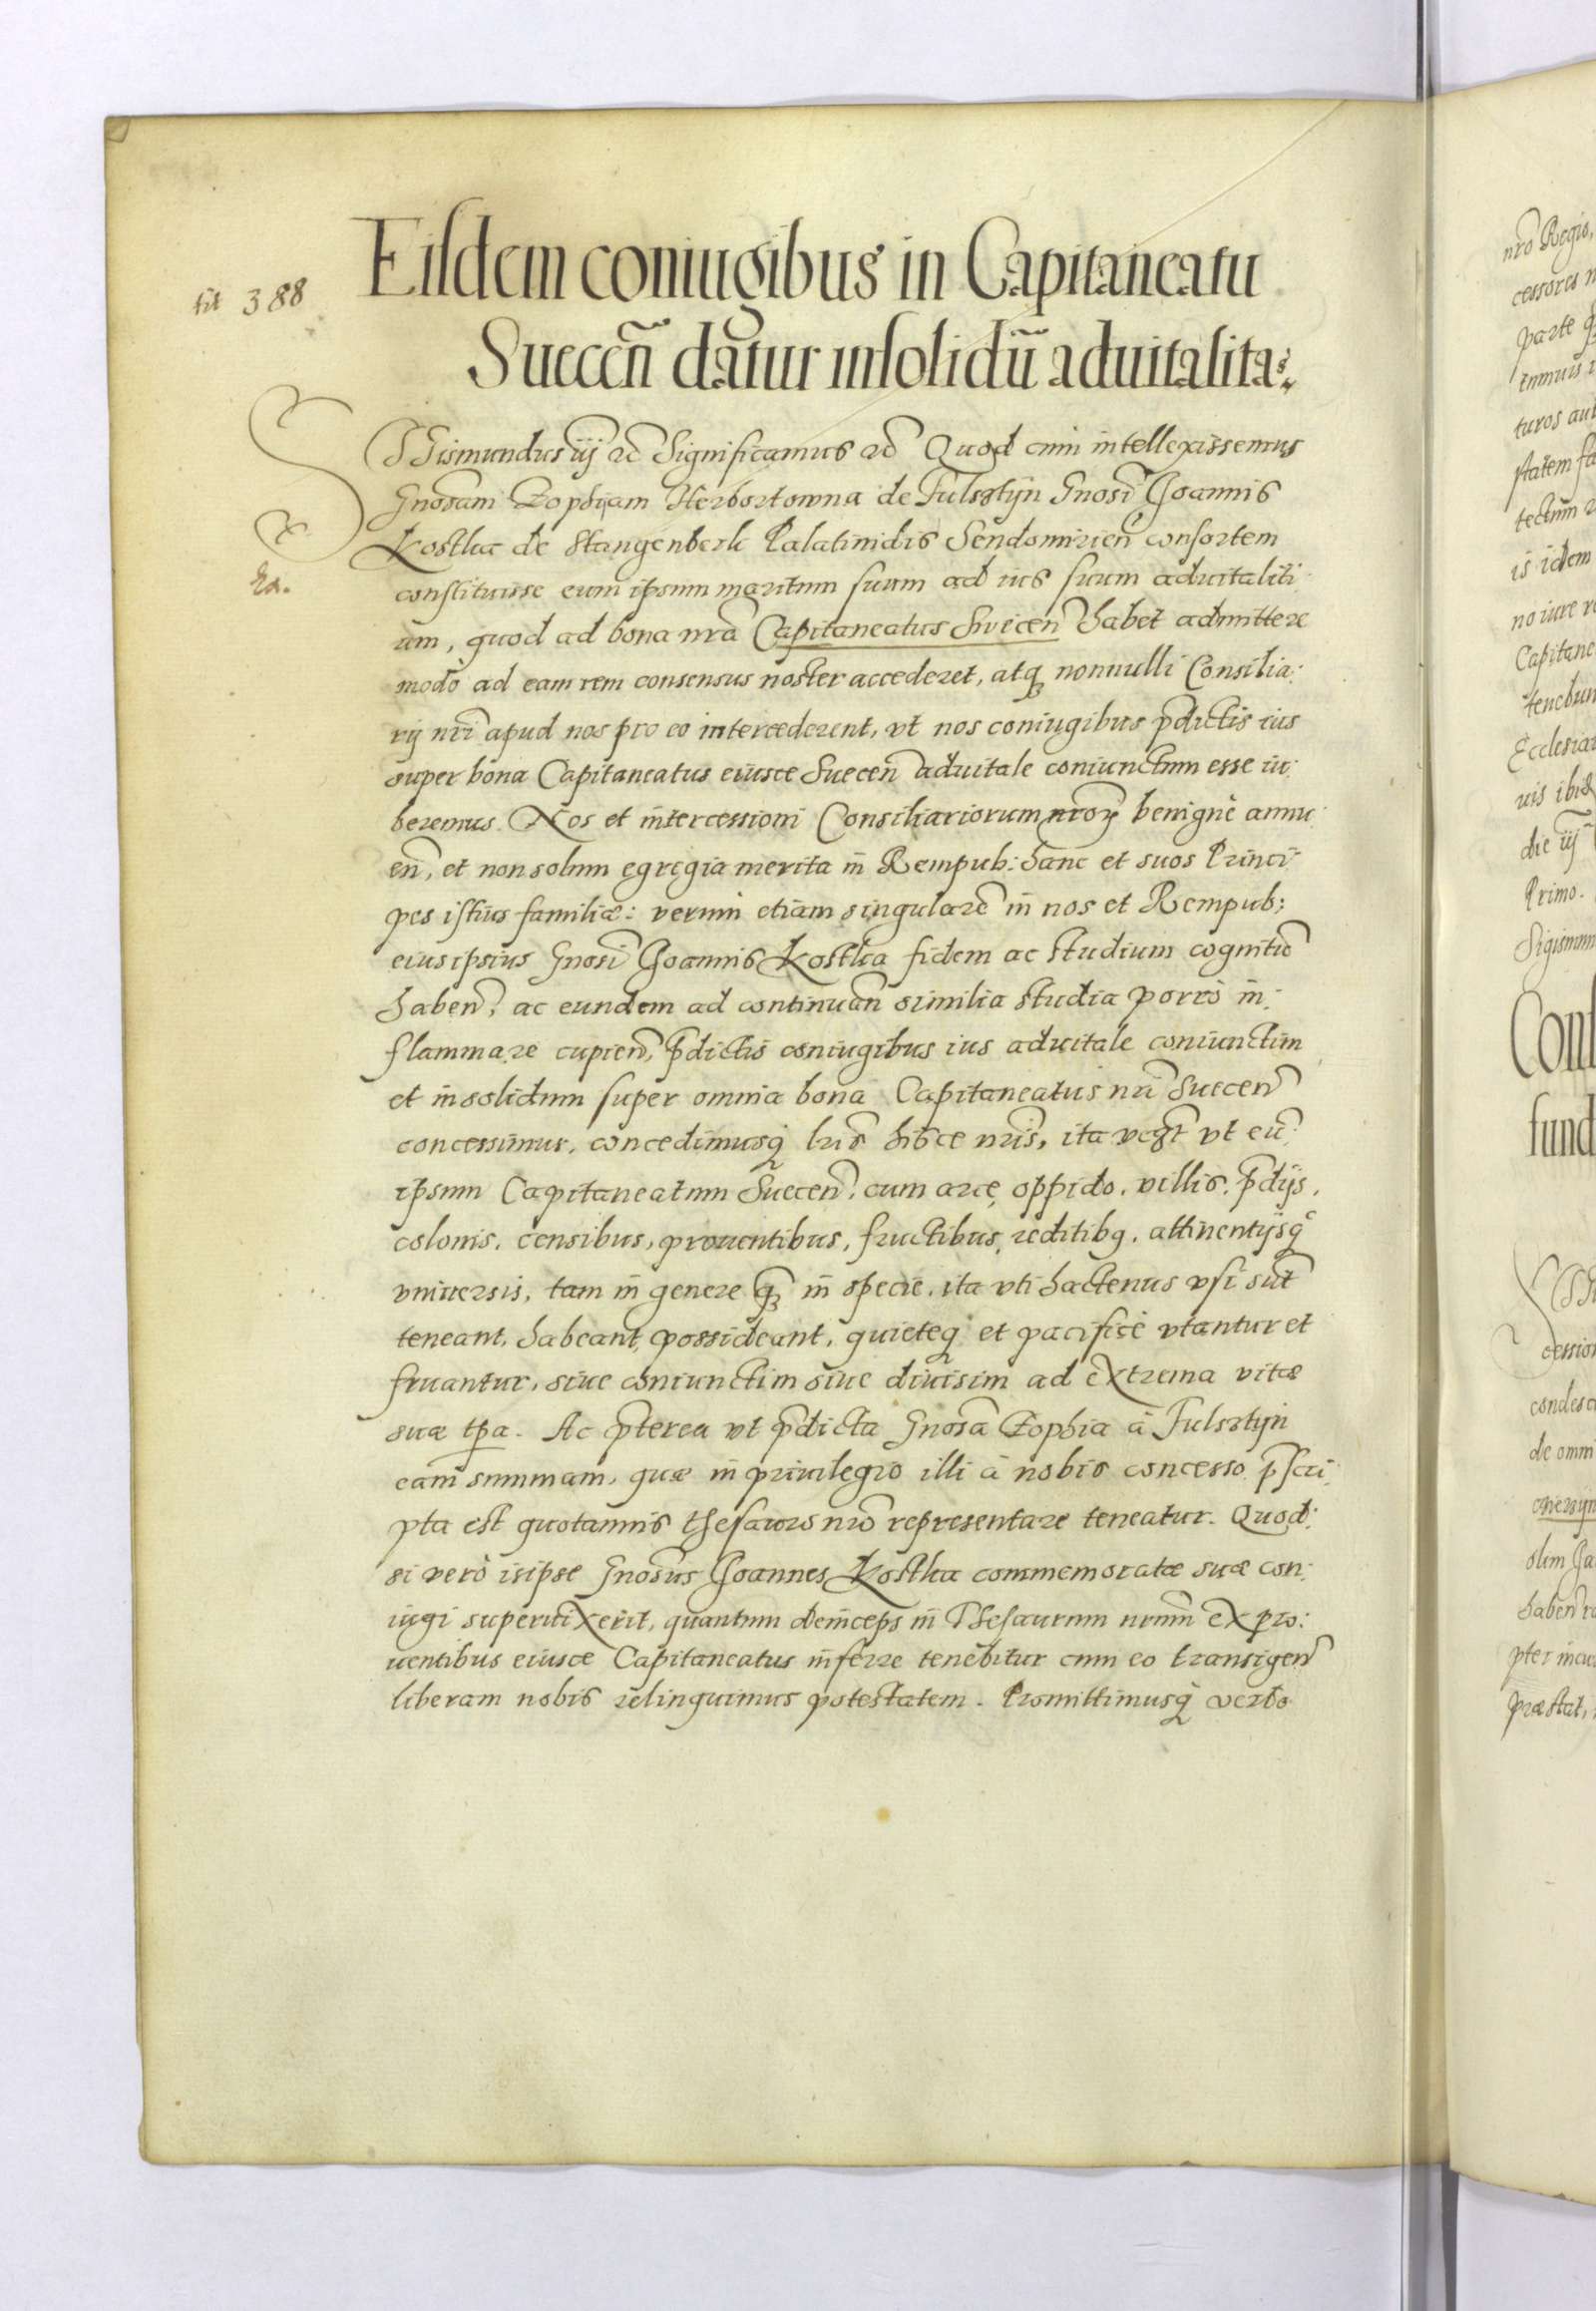 fit 388
Eisdem coniugibus in Capitaneatu
Suecen̄ datur insolidū aduitalitas
SIgismundus iij &c̃ Significamus &c̃ Quod cum intellexissemus
Gnosam Zophijam Herbortowna de Fulsstijn Gnosi Joannis
Kostka de Stangenberk Palatinidis Sendomirien̄ consortem
Ra.
constituisse eum ipsum maritum suum ad ius suum aduitaliti:
um, quod ad bona nr̄a Capitaneatus Svicen̄ habet admittere
modò ad eam rem consensus noster accederet, atq; nonnulli Consilia:
rij nr̄i apud nos pro eo intercederent, vt nos coniugibus p̄dictis ius
super bona Capitaneatus eiusce Suecen̄ aduitale coniunctum esse iu:
beremus. Nos et intercessioni Consiliariorum nr̄oꝝ benignè annu:
en̄, et non solum egregia merita in Rempub: hanc et suos Princi:
pes istius familiæ: verum etiam singularē in nos et Rempub:
eius ipsius Gnosi Joannis Kostka fidem ac studium cognitū
haben̄, ac eundem ad continuan̄ similia studia porrò in:
flammare cupien̄, p̄dictis coniugibus ius aduitale coniunctim
et insolidum super omnia bona Capitaneatus nr̄i Suecen̄
concessimus, concedimusq; lr̄is hisce nr̄is, ita videlt vt eū:
ipsum Capitaneatum Suecen̄, cum arce, oppido, villis, p̄dijs,
colonis, censibus, prouentibus, fructibus, reditibq, attinentijsq;
vniuersis, tam in genere q̄; in specie, ita vti hactenus vsi sūt
teneant, habeant, possideant, quieteq; et pacificè vtantur et
fruantur, siue coniunctim siue diuisim ad extrema vitæ
suæ tp̄a. Ac p̄terea vt p̄dicta Gnosa Zophia à Fulsstijn
eam summam, quæ in priuilegio illi à nobis concesso p̄scri:
pta est quotannis thesauro nr̄o representare teneatur. Quod:
si verò is ipse Gnosus Joannes Kostka commemoratæ suæ con:
iugi superuixerit, quantum deinceps in Thesaurum nrum̄ ex pro:
uentibus eiusce Capitaneatus inferre tenebitur cum eo transigen̄
liberam nobis relinquimus potestatem. Promittimusq; verbo
nr̄o Regio,
cessores n
parte q
tectum
is idem
no iure
Capitane
tenebun
Ecclesia
uis ibid
die iij
Primo.
Sigismun
Con
fund
cession
de omni
olim Ja
haben̄
præstat,